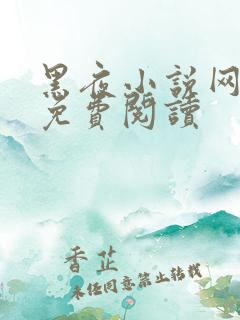 黑夜小说网
免費閱讀
香芷
未经同意禁止转载